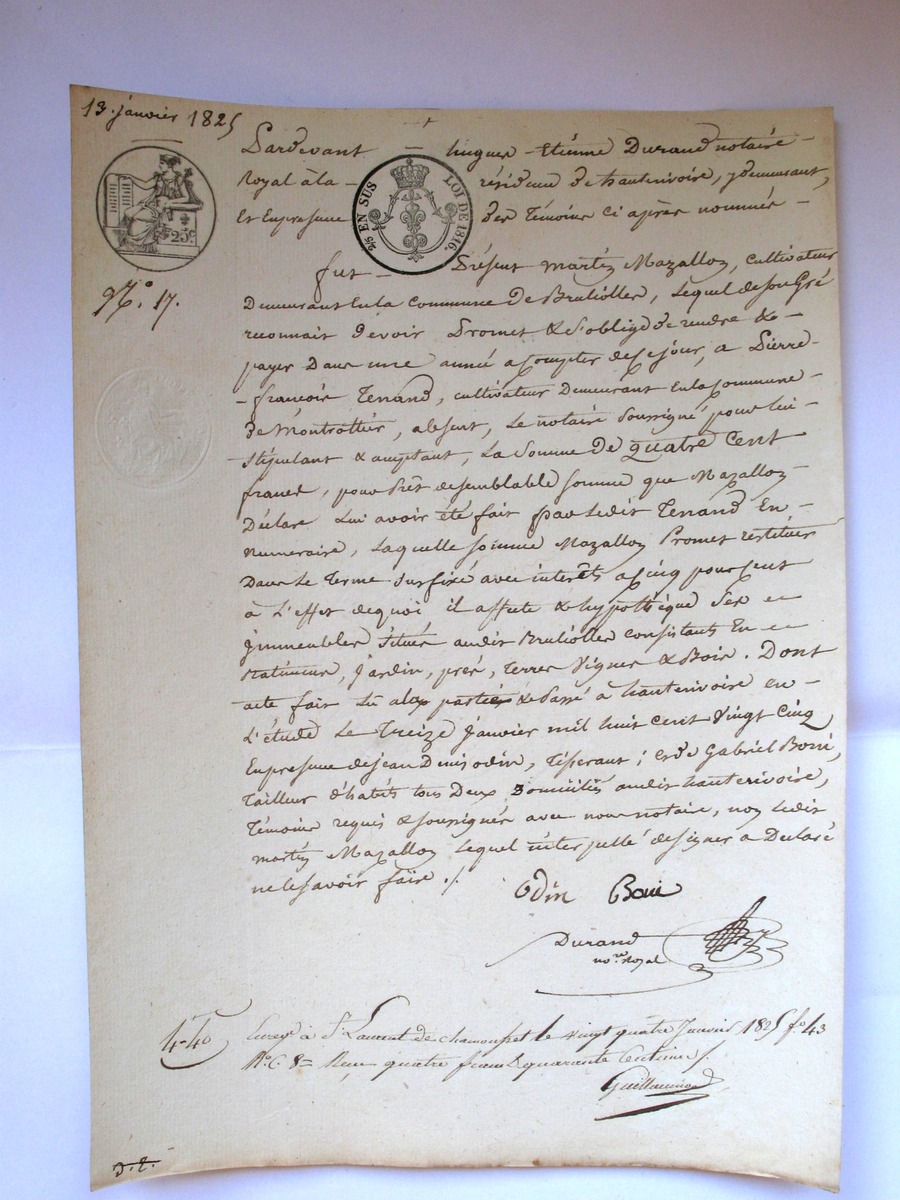 13. janvier 1825
Pardevant hugues Etienne Durand notaire
Royal à la résidence de hauterivoire, y demeurant,
Et En presence des Témoins Ci après nommés
25c
2/5 EN SUS LOI DE 1816.
N.o 17.
fut Présent martin Mazallon, cultivateur
Demeurant En la Commune De Brullolles, Lequel de son Gré
reconnait devoir Promet & S'oblige de rendre &
payer Dans une année a Compter de ce jour, a Pierre
françois Tenand, cultivateur Demeurant En la Commune
de Montrottier, absent, Le notaire Soussigné pour lui
Stipulant & acceptant, La Somme De Quatre Cent
francs, pour Prêt de semblable somme que Mazallon
Déclare Lui avoir été fait par Ledit Tenand En
Numéraire, Laquelle somme Mazallon Promet restituer
Dans Le Terme susfixé avec intérêts a cinq pour cent
à L'effet de quoi il affecte & hypothèque Ses
immeubles Situés audit Brullolles consistants En
Batiments, Jardin, prés, Terres Vignes & Bois. Dont
acte fait Lu aux parties & Passé à hauterivoire en
L'étude Le Treize Janvier mil huit cent Vingt Cinq
En presence de jean Denis odin, Tisserant ; et de Gabriel Boni,
Tailleur d'habits tous Deux Domiciliés audit hauterivoire,
Témoins requis & soussignés avec nous notaire, non ledit
martin Mazallon Lequel interpellé de signer a Déclaré
ne le savoir faire ./.
Odin Boni
Durand
no.re Royal
4-40
Enreg. à St. Laurent de chamousset le vingt quatre Janvier 1825 fo. 43
R.o C. 8 = Reçu quatre francs quarante Centimes /.
D. E.